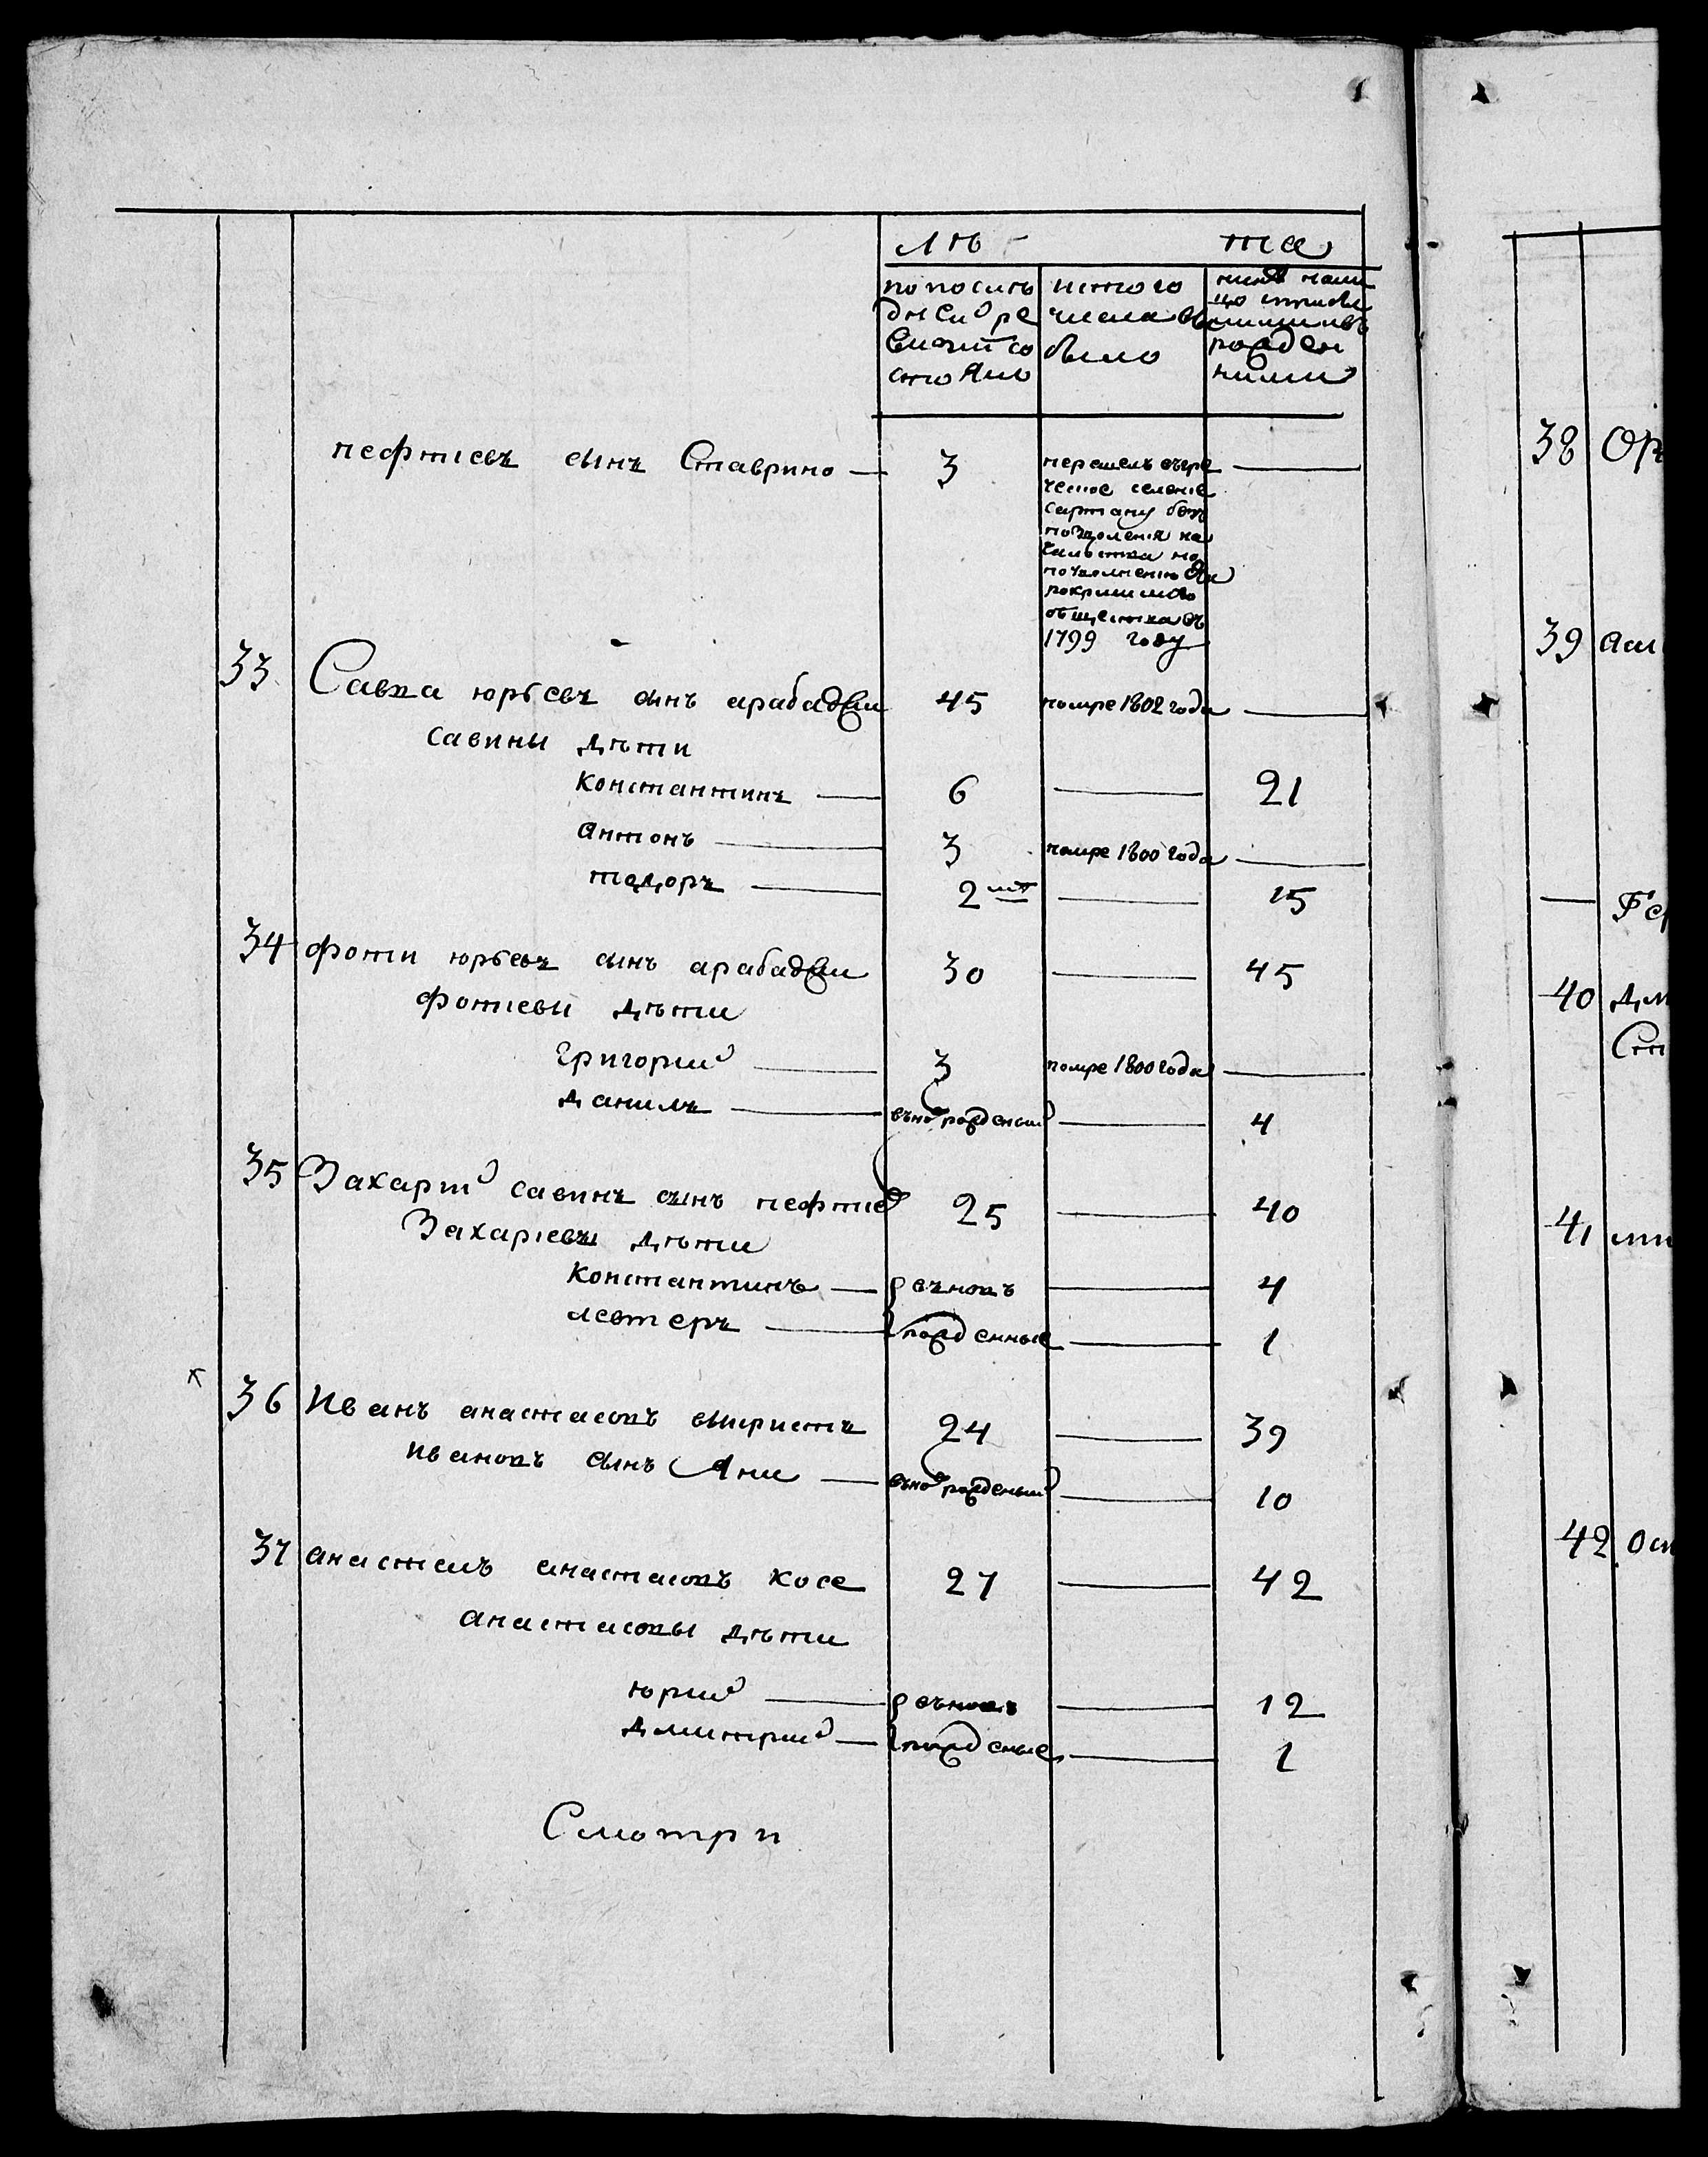 лѣ та
по посалѣ
дней ре
визіи со
стояло
ис того
числа вы
было
ныне
рожден
ными
нефтиевъ сынъ Ставрино 3
перешелъ въ гре
ческое селение
Сартану безъ
позволения на
чальства по
общества въ
1799 году
33 Савва юрьевъ сынъ арабаджи 45 помре 1802 года
савины дѣти
константинъ 6 21
антонъ 3 помре 1800 года
тодоръ 2 мѣ 15
34 фоти юрьевъ сынъ арабаджи 30 45
фотиевы дѣти
григорий 3 помре 1800 года
данилъ вновь рожденый 4
35 Захарий савинъ сынъ нефтие 25 40
Захариевы дѣти
константинъ вновь 4
лефтеръ рожденные 1
36 Иванъ анастасовъ 24 39
ивановъ сынъ Яни вновь рожденый 10
37 анастасъ анастасовъ косе 27 42
анастасовы дѣти
юрий вновь 12
дмитрий рожденые 1
Смотри
38 Ор
39
40 Дм
41
42